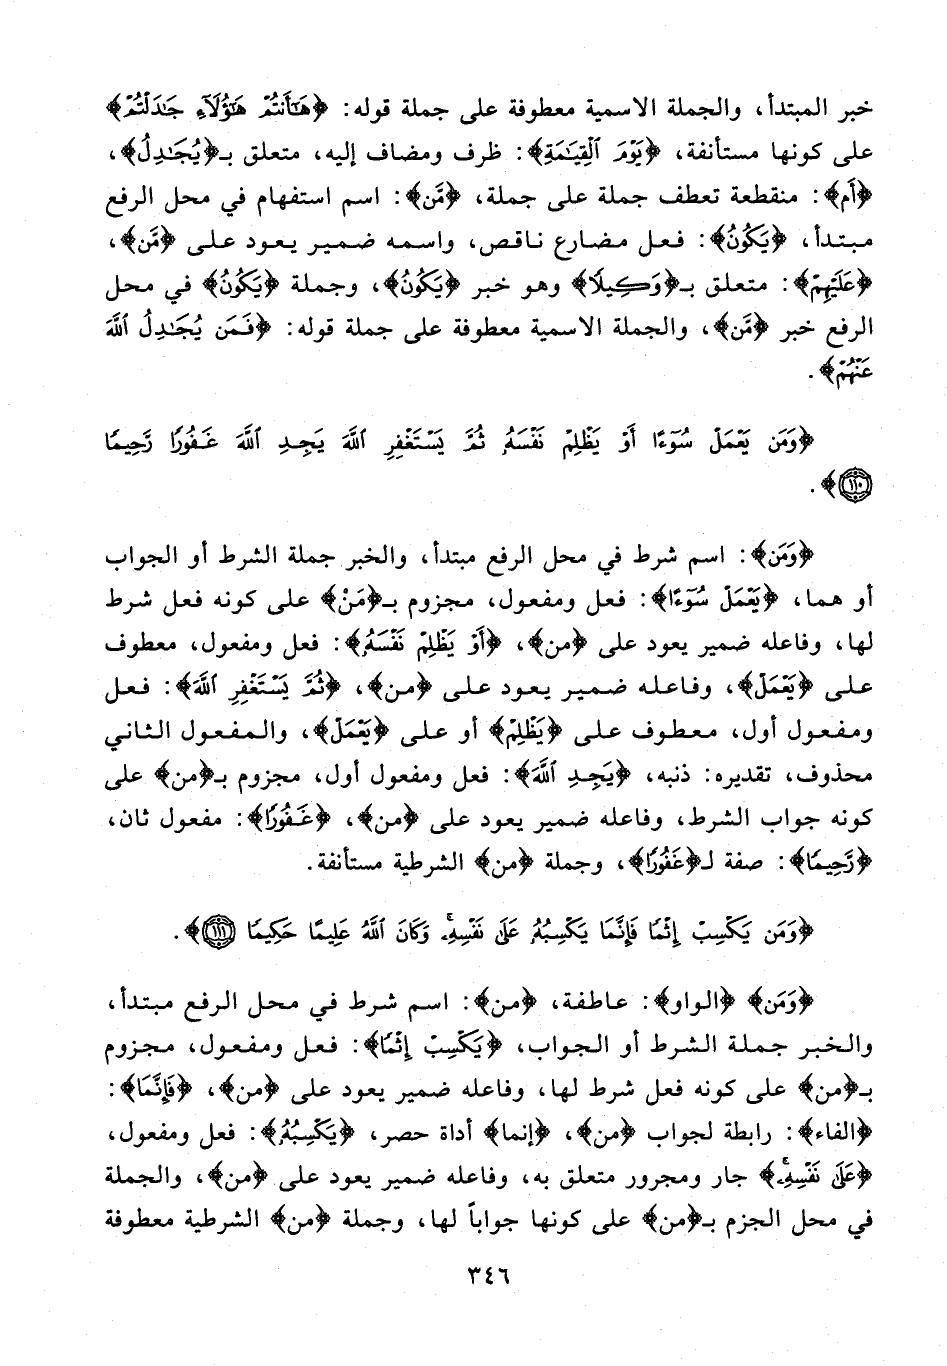 خبر المبتدأ، والجملة الاسمية معطوفة على جملة قوله: ﴿هَٰٓأَنتُمْ هَٰٓؤُلَآءِ جَٰدَلْتُمْ﴾
على كونها مستأنفة، ﴿يَوْمَ ٱلْقِيَٰمَةِ﴾: ظرف ومضاف إليه، متعلق بـ﴿يُجَٰدِلُ﴾،
﴿أَم﴾: منقطعة تعطف جملة على جملة، ﴿مَّن﴾: اسم استفهام في محل الرفع
مبتدأ، ﴿يَكُونُ﴾: فعل مضارع ناقص، واسمه ضمير يعود على ﴿مَّن﴾،
﴿عَلَيْهِمْ﴾: متعلق بـ﴿وَكِيلًا﴾ وهو خبر ﴿يَكُونُ﴾، وجملة ﴿يَكُونُ﴾ في محل
الرفع خبر ﴿مَّن﴾، والجملة الاسمية معطوفة على جملة قوله: ﴿فَمَن يُجَٰدِلُ ٱللَّهَ
عَنْهُمْ﴾.
﴿وَمَن يَعْمَلْ سُوٓءًا أَوْ يَظْلِمْ نَفْسَهُۥ ثُمَّ يَسْتَغْفِرِ ٱللَّهَ يَجِدِ ٱللَّهَ غَفُورًا رَّحِيمًا
١١٠﴾.
﴿وَمَن﴾: اسم شرط في محل الرفع مبتدأ، والخبر جملة الشرط أو الجواب
أو هما، ﴿يَعْمَلْ سُوٓءًا﴾: فعل ومفعول، مجزوم بـ﴿مَنْ﴾ على كونه فعل شرط
لها، وفاعله ضمير يعود على ﴿من﴾، ﴿أَوْ يَظْلِمْ نَفْسَهُۥ﴾: فعل ومفعول، معطوف
على ﴿يَعْمَلْ﴾، وفاعله ضمير يعود على ﴿من﴾، ﴿ثُمَّ يَسْتَغْفِرِ ٱللَّهَ﴾: فعل
ومفعول أول، معطوف على ﴿يَظْلِمْ﴾ أو على ﴿يَعْمَلْ﴾، والمفعول الثاني
محذوف، تقديره: ذنبه، ﴿يَجِدِ ٱللَّهَ﴾: فعل ومفعول أول، مجزوم بـ﴿من﴾ على
كونه جواب الشرط، وفاعله ضمير يعود على ﴿من﴾، ﴿غَفُورًا﴾: مفعول ثان،
﴿رَّحِيمًا﴾: صفة لـ﴿غَفُورًا﴾، وجملة ﴿من﴾ الشرطية مستأنفة.
﴿وَمَن يَكْسِبْ إِثْمًا فَإِنَّمَا يَكْسِبُهُۥ عَلَىٰ نَفْسِهِۦۚ وَكَانَ ٱللَّهُ عَلِيمًا حَكِيمًا ١١١﴾.
﴿وَمَن﴾ ﴿الواو﴾: عاطفة، ﴿من﴾: اسم شرط في محل الرفع مبتدأ،
والخبر جملة الشرط أو الجواب، ﴿يَكْسِبْ إِثْمًا﴾: فعل ومفعول، مجزوم
بـ﴿من﴾ على كونه فعل شرط لها، وفاعله ضمير يعود على ﴿من﴾، ﴿فَإِنَّمَا﴾:
﴿الفاء﴾: رابطة لجواب ﴿من﴾، ﴿إنما﴾ أداة حصر، ﴿يَكْسِبُهُۥ﴾: فعل ومفعول،
﴿عَلَىٰ نَفْسِهِۦۚ﴾ جار ومجرور متعلق به، وفاعله ضمير يعود على ﴿من﴾، والجملة
في محل الجزم بـ﴿من﴾ على كونها جواباً لها، وجملة ﴿من﴾ الشرطية معطوفة
٣٤٦